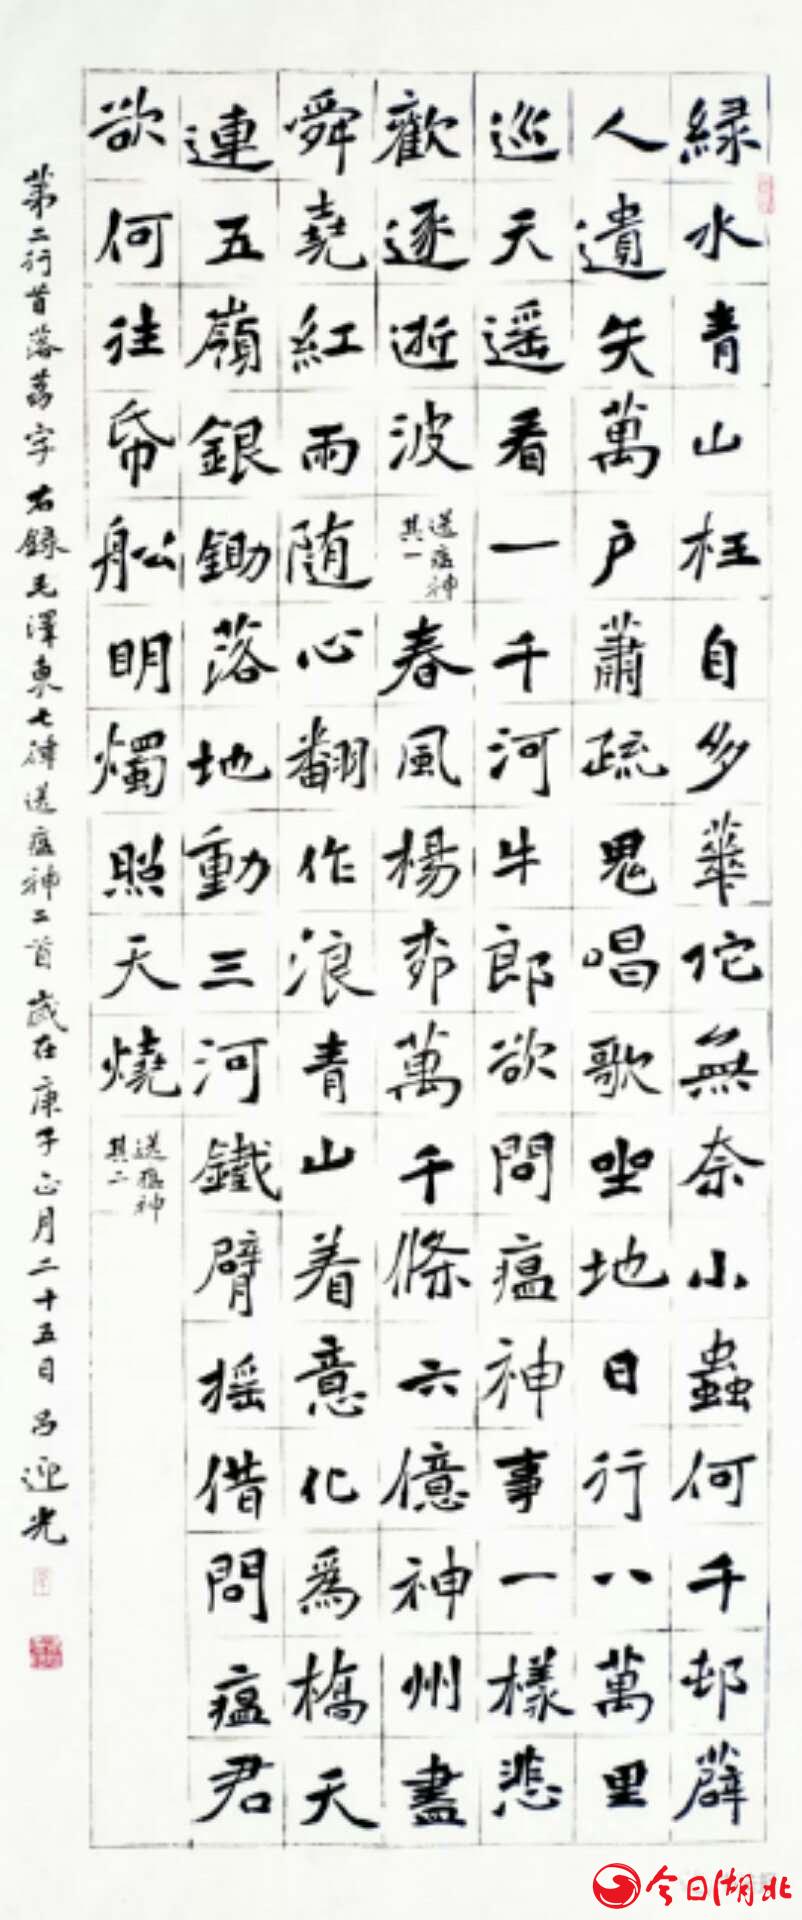 緑水青山枉自多華佗無奈小蟲何千邨薜
人遺矢萬户蕭疏鬼唱歌坐地日行八萬里
巡天遥看一千河牛郎欲問瘟神事一樣悲
歡逐逝波 送瘟神其一 春風楊柳萬千條六億神州盡
舜堯紅雨随心翻作浪青山着意化爲橋天
連五嶺銀鋤落地動三河鐵臂摇借問瘟君
欲何往帋船明燭照天燒 送瘟神其二
第二行首落荔字 右録毛澤東七律送瘟神二首 歲在庚子正月二十五日吕迎光
今日湖北